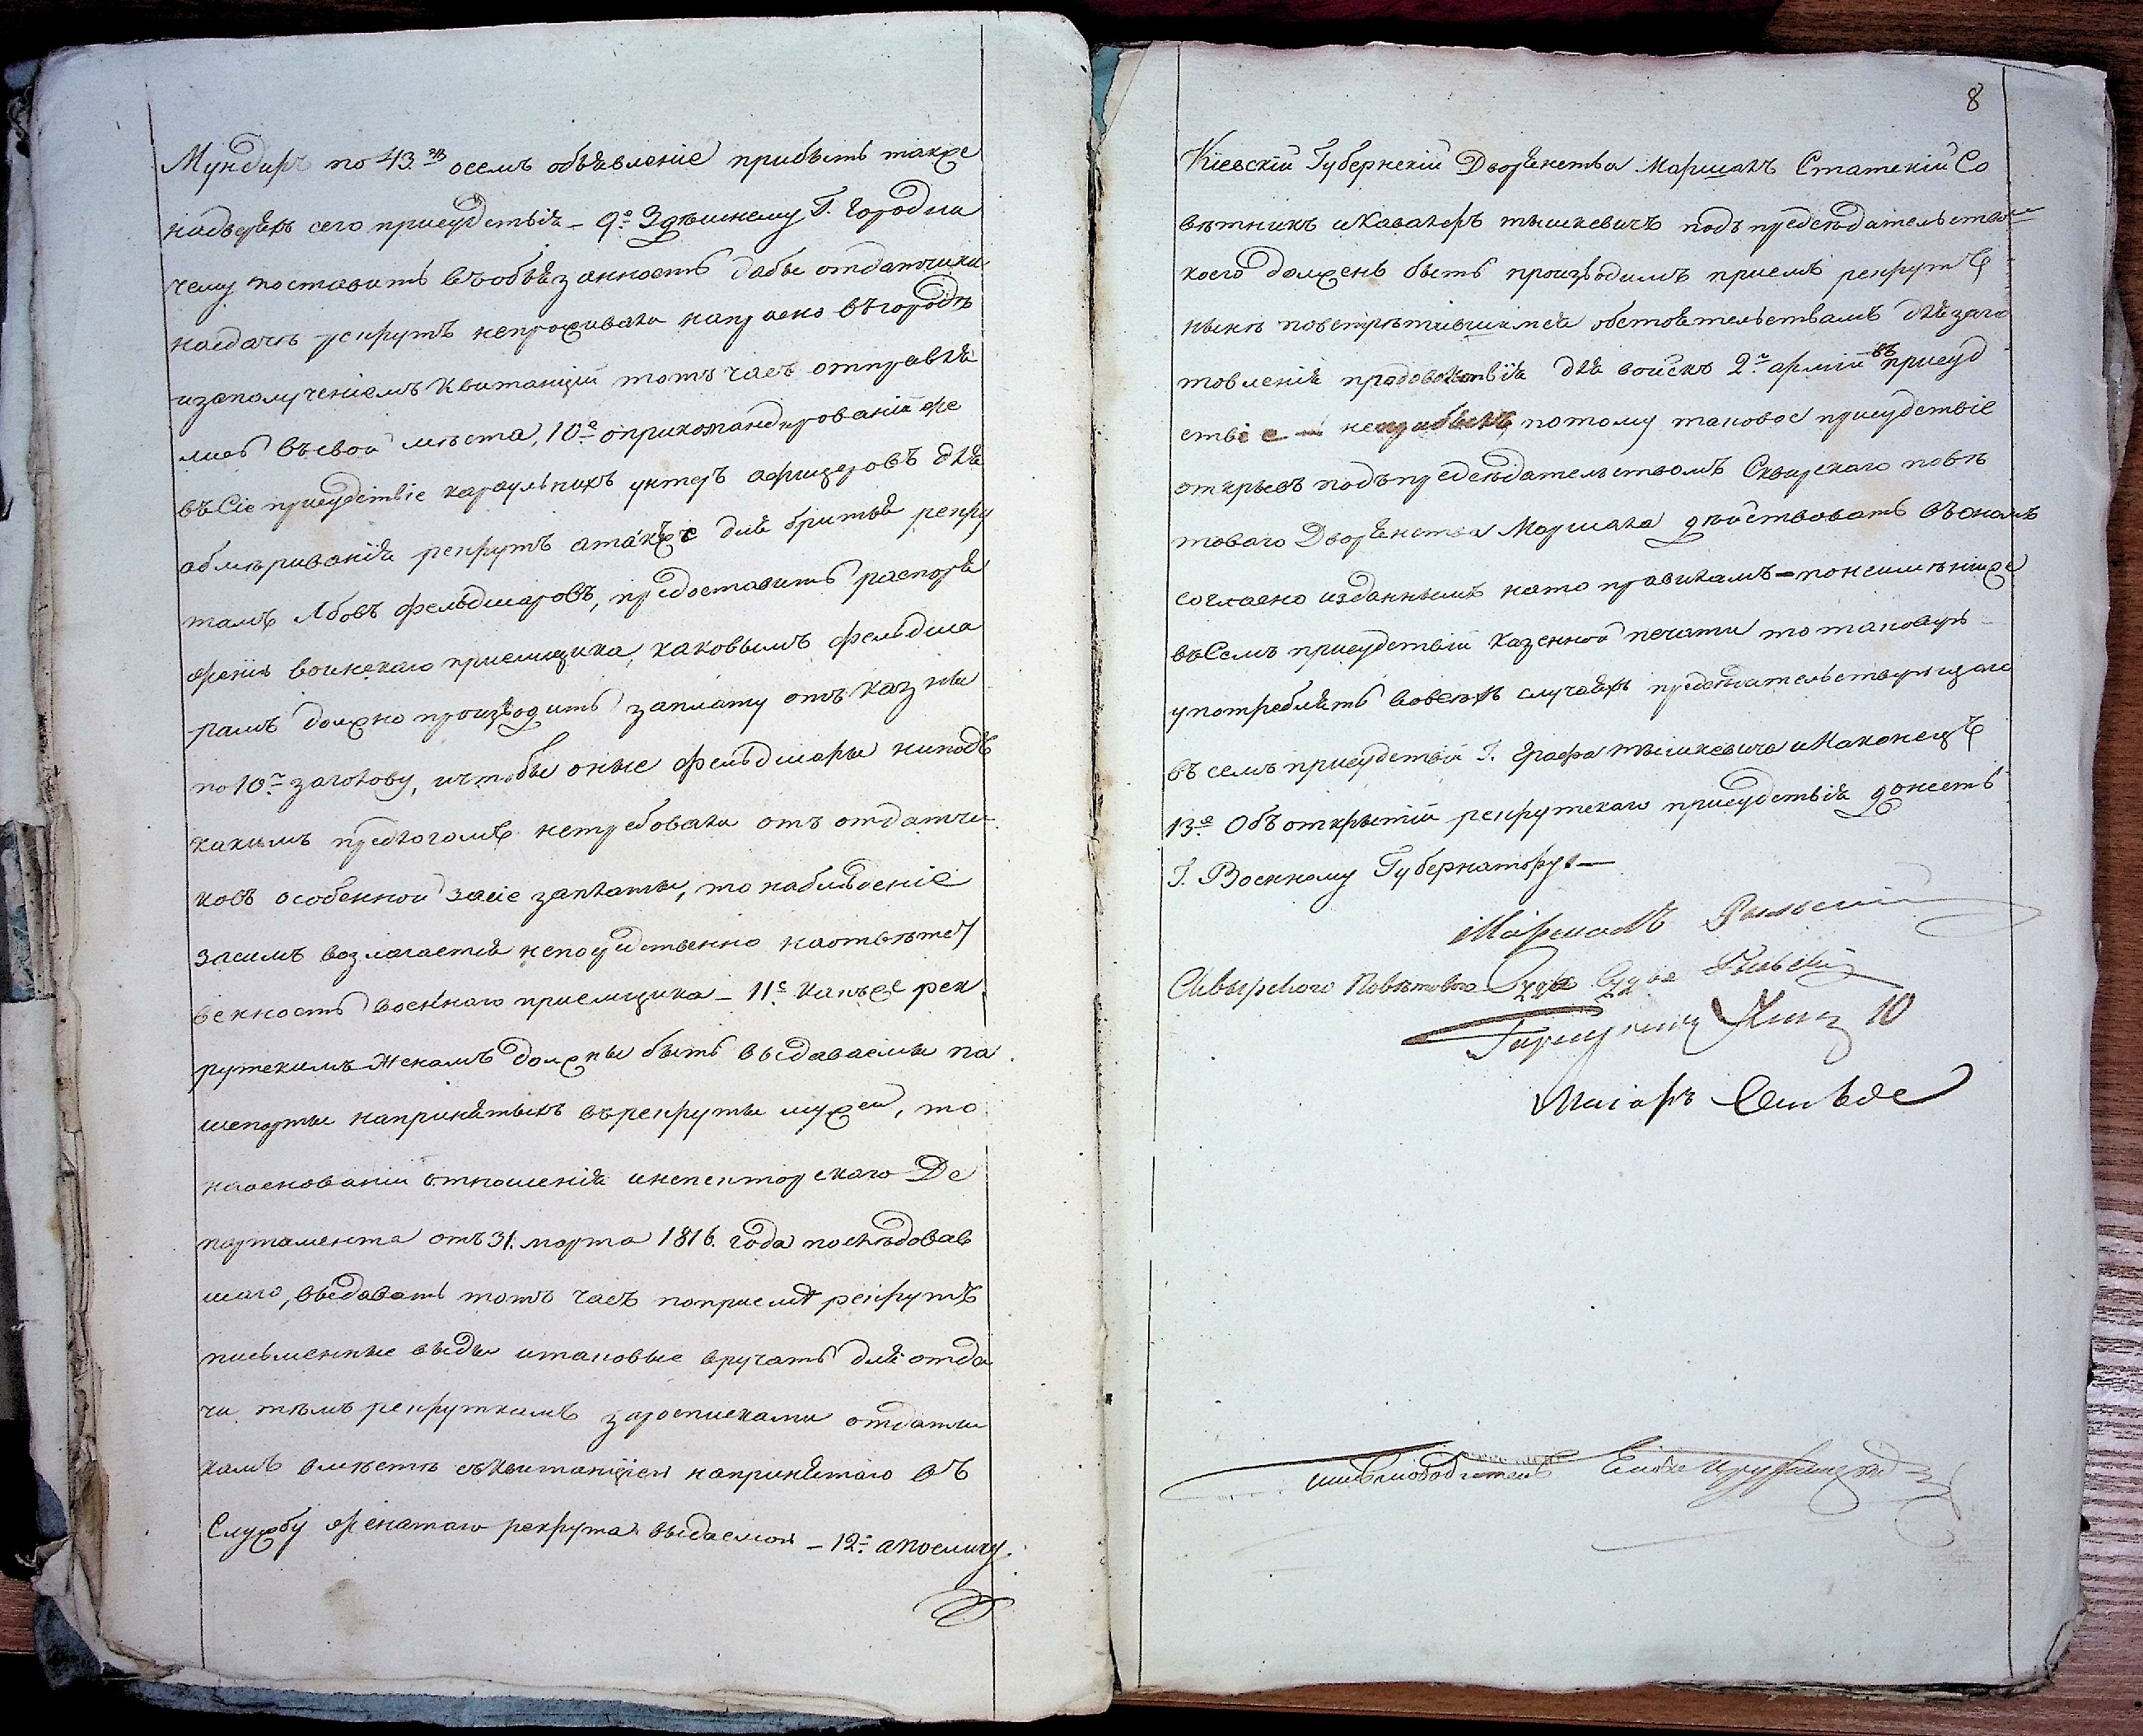 Мундиръ по 43. осемъ объявленіе прибить также
надверяхъ сего присудствія – 9е Здѣшнему Г. Городни
чему поставить въобязанность дабы отдатчики
насдачѣ рекрутъ непроживали напрасно въгородѣ
изаполученіемъ Квитанціи тотъ часъ отправля
лись въсвои мѣста, 10е оприкомандированіи же
въСіе присудствіе караульнихъ унтеръ афицеровъ для
абмѣриванія рекрутъ атакже для бритья рекру
тамъ лбовъ фельдшаровъ, предоставить распоря
женію воинскаго приемщика, каковымъ фельдша
рамъ должно производить заплату отъ казны
по 10 заголову, ичтобы оные фельдшары ниподъ
какимъ предлогомъ нетребовали отъ отдатчи
ковъ особенной засіе заплаты, то наблюденіе
засимъ возлагается непосредственно наотвѣтст
венность военнаго приемщика – 11е Какъже рек
рутскимъ Женамъ должны быть выдаваемы па
шепорты напринятыхъ върекруты мужей, то
наоснованіи отношенія инспекторскаго Де
партамента отъ 31. марта 1816. года послѣдовав
шаго, выдавать тотъ часъ поприемѣ рекрутъ
письменные виды итаковые вручать для отда
чи тѣмъ рекруткамъ заросписками отдатчи
камъ вмѣстѣ съквитанціею напринятаго въ
Службу женатаго рекрута выдаемои – 12е апоелику
8
Кіевскій Губернскій Дворянства Маршалъ Статскій Со
вѣтникъ иКавалеръ тышкевичъ подъ предсѣдательствомъ
коего долженъ быть производимъ приемъ рекрутъ
нынѣ повстрѣтившимся обстоятельствамъ длязаго
товленія продовольствія для войскъ 2й арміи въ присуд
ствіе – неприбылъ, потому таковое присудствіе
открывъ подъпредсѣдательствомъ Сквирскаго повѣ
товаго Дворянства Маршала дѣйствовать въономъ
согласно изданнымъ нато правиламъ – понеимѣніюже
въСемъ присудствіи казенной печати то таковую
употреблять вовсѣхъ случаяхъ предсѣдательствующаго
въ семъ присудствіи Г. Графа тышкевича иНаконецъ
13е Объ открытіи рекрутскаго присудствія донесть
Г. Военному Губернатору –
Маршалъ
Сквирского Повѣтового Суда Судья
Маіоръ